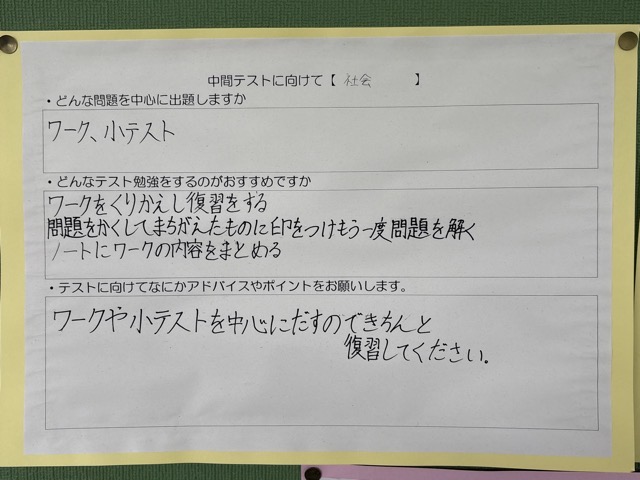 中間テストに向けて【 社会 】
・どんな問題を中心に出題しますか
ワーク、小テスト
・どんなテスト勉強をするのがおすすめですか
ワークをくりかえし復習をする
問題をかくしてまちがえたものに印をつけもう一度問題を解く
ノートにワークの内容をまとめる
・テストに向けてなにかアドバイスやポイントをお願いします。
ワークや小テストを中心にだすのできちんと
復習してください。